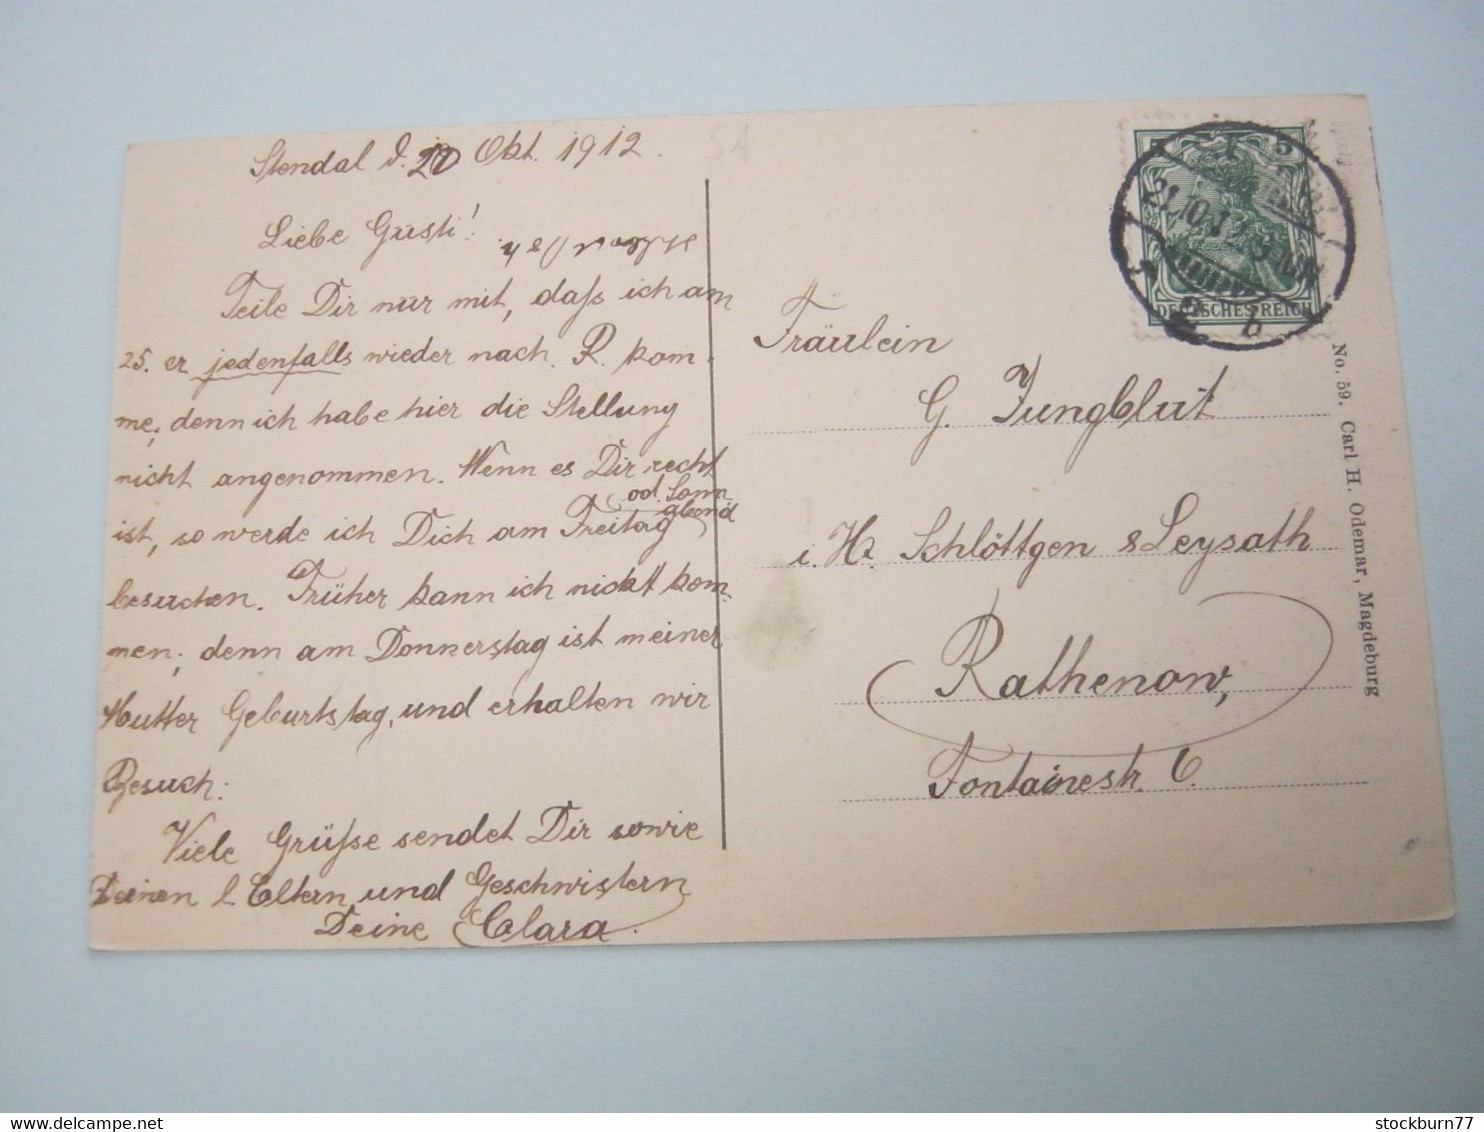 Stendal d. 20 Okt. 1912.
Liebe Gusti!
Teile Dir nur mit, dass ich am
25. er jedenfalls wieder nach R. kom-
me, denn ich habe hier die Stellung
nicht angenommen. Wenn es Dir recht
ist, so werde ich Dich am Freitag
od. Sonn
abend
besuchen. Früher kann ich nicht kom-
men, denn am Donnerstag ist meiner
Mutter Geburtstag, und erhalten wir
Besuch.
Viele Grüsse sendet Dir sowie
Deinen l. Eltern und Geschwistern
Deine Clara.
Fräulein
G. Jungblut
i. Hs. Schlöttgen & Leysath
Rathenow,
Fontanestr. 6.
5 5
21.10.12
DEUTSCHES REICH
b
No. 59. Carl H. Odemar, Magdeburg
SA
stockburn77